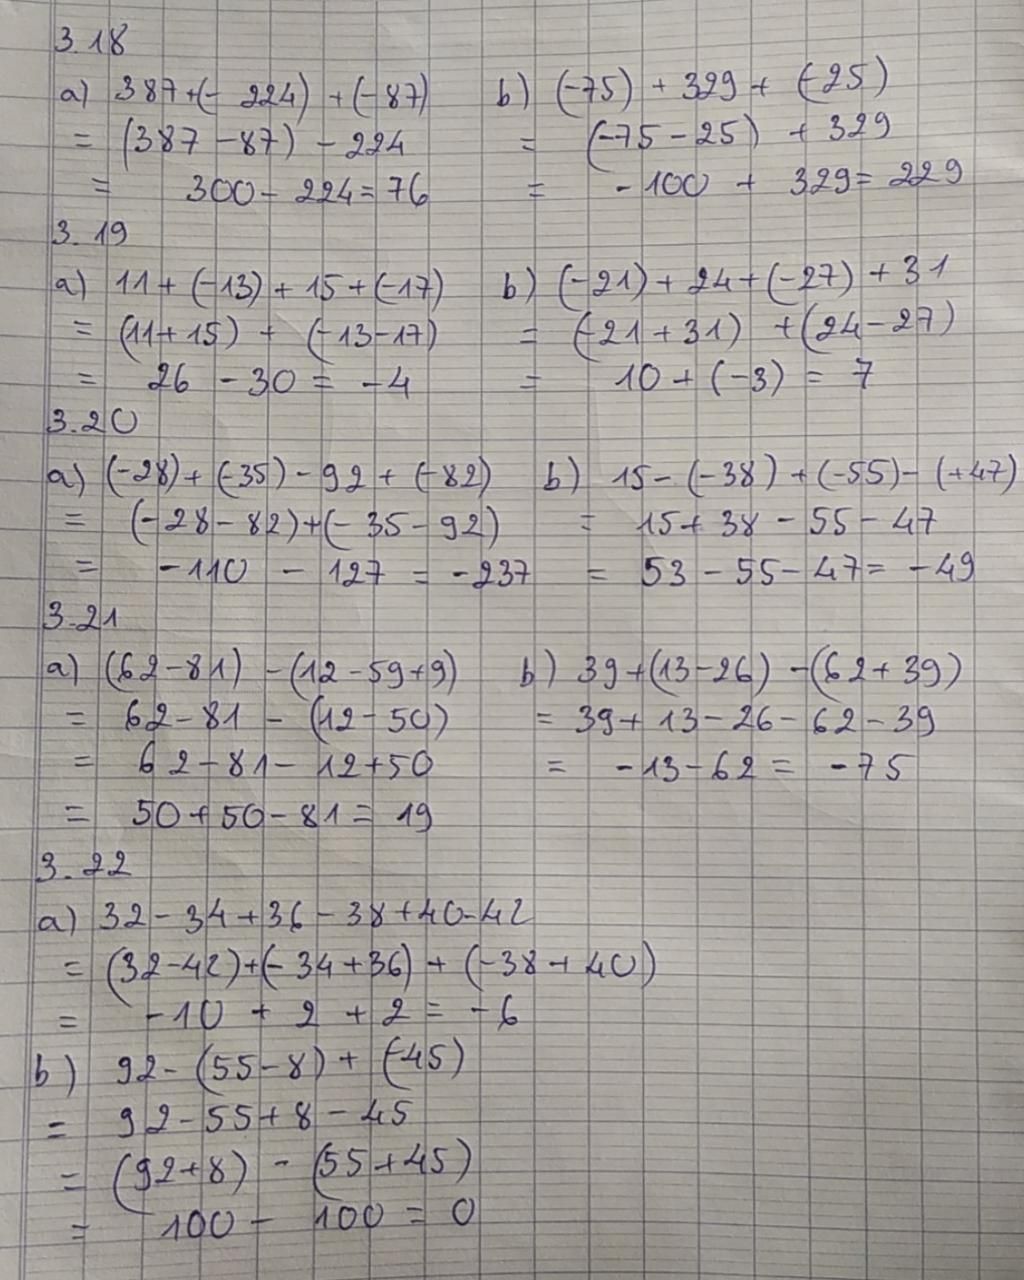 3.18
a) 387+(- 224) + (-87)
= (387 - 87) - 224
= 300 - 224 = 76
b) (-75) + 329 + (-25)
= (-75 - 25) + 329
= -100 + 329 = 229
3.19
a) 11 + (-13) + 15 + (-17)
= (11 + 15) + (-13-17)
= 26 - 30 = -4
b) (-21) + 24 + (-27) + 31
= (-21 + 31) + (24 - 27)
= 10 + (-3) = 7
3.20
a) (-28) + (-35) - 92 + (-82)
= (-28 - 82)+(- 35 - 92)
= -110 - 127 = -237
b) 15 - (-38) + (-55) - (+47)
= 15 + 38 - 55 - 47
= 53 - 55 - 47 = -49
3.21
a) (62 - 81) - (12 - 59 + 9)
= 62 - 81 - (12 - 50)
= 62 - 81 - 12 + 50
= 50 + 50 - 81 = 19
b) 39 + (13 - 26) - (62 + 39)
= 39 + 13 - 26 - 62 - 39
= -13 - 62 = -75
3.22
a) 32 - 34 + 36 - 38 + 40 - 42
= (32 - 42) + (- 34 + 36) + (-38 + 40)
= -10 + 2 + 2 = -6
b) 92 - (55 - 8) + (-45)
= 92 - 55 + 8 - 45
= (92 + 8) - (55 + 45)
= 100 - 100 = 0